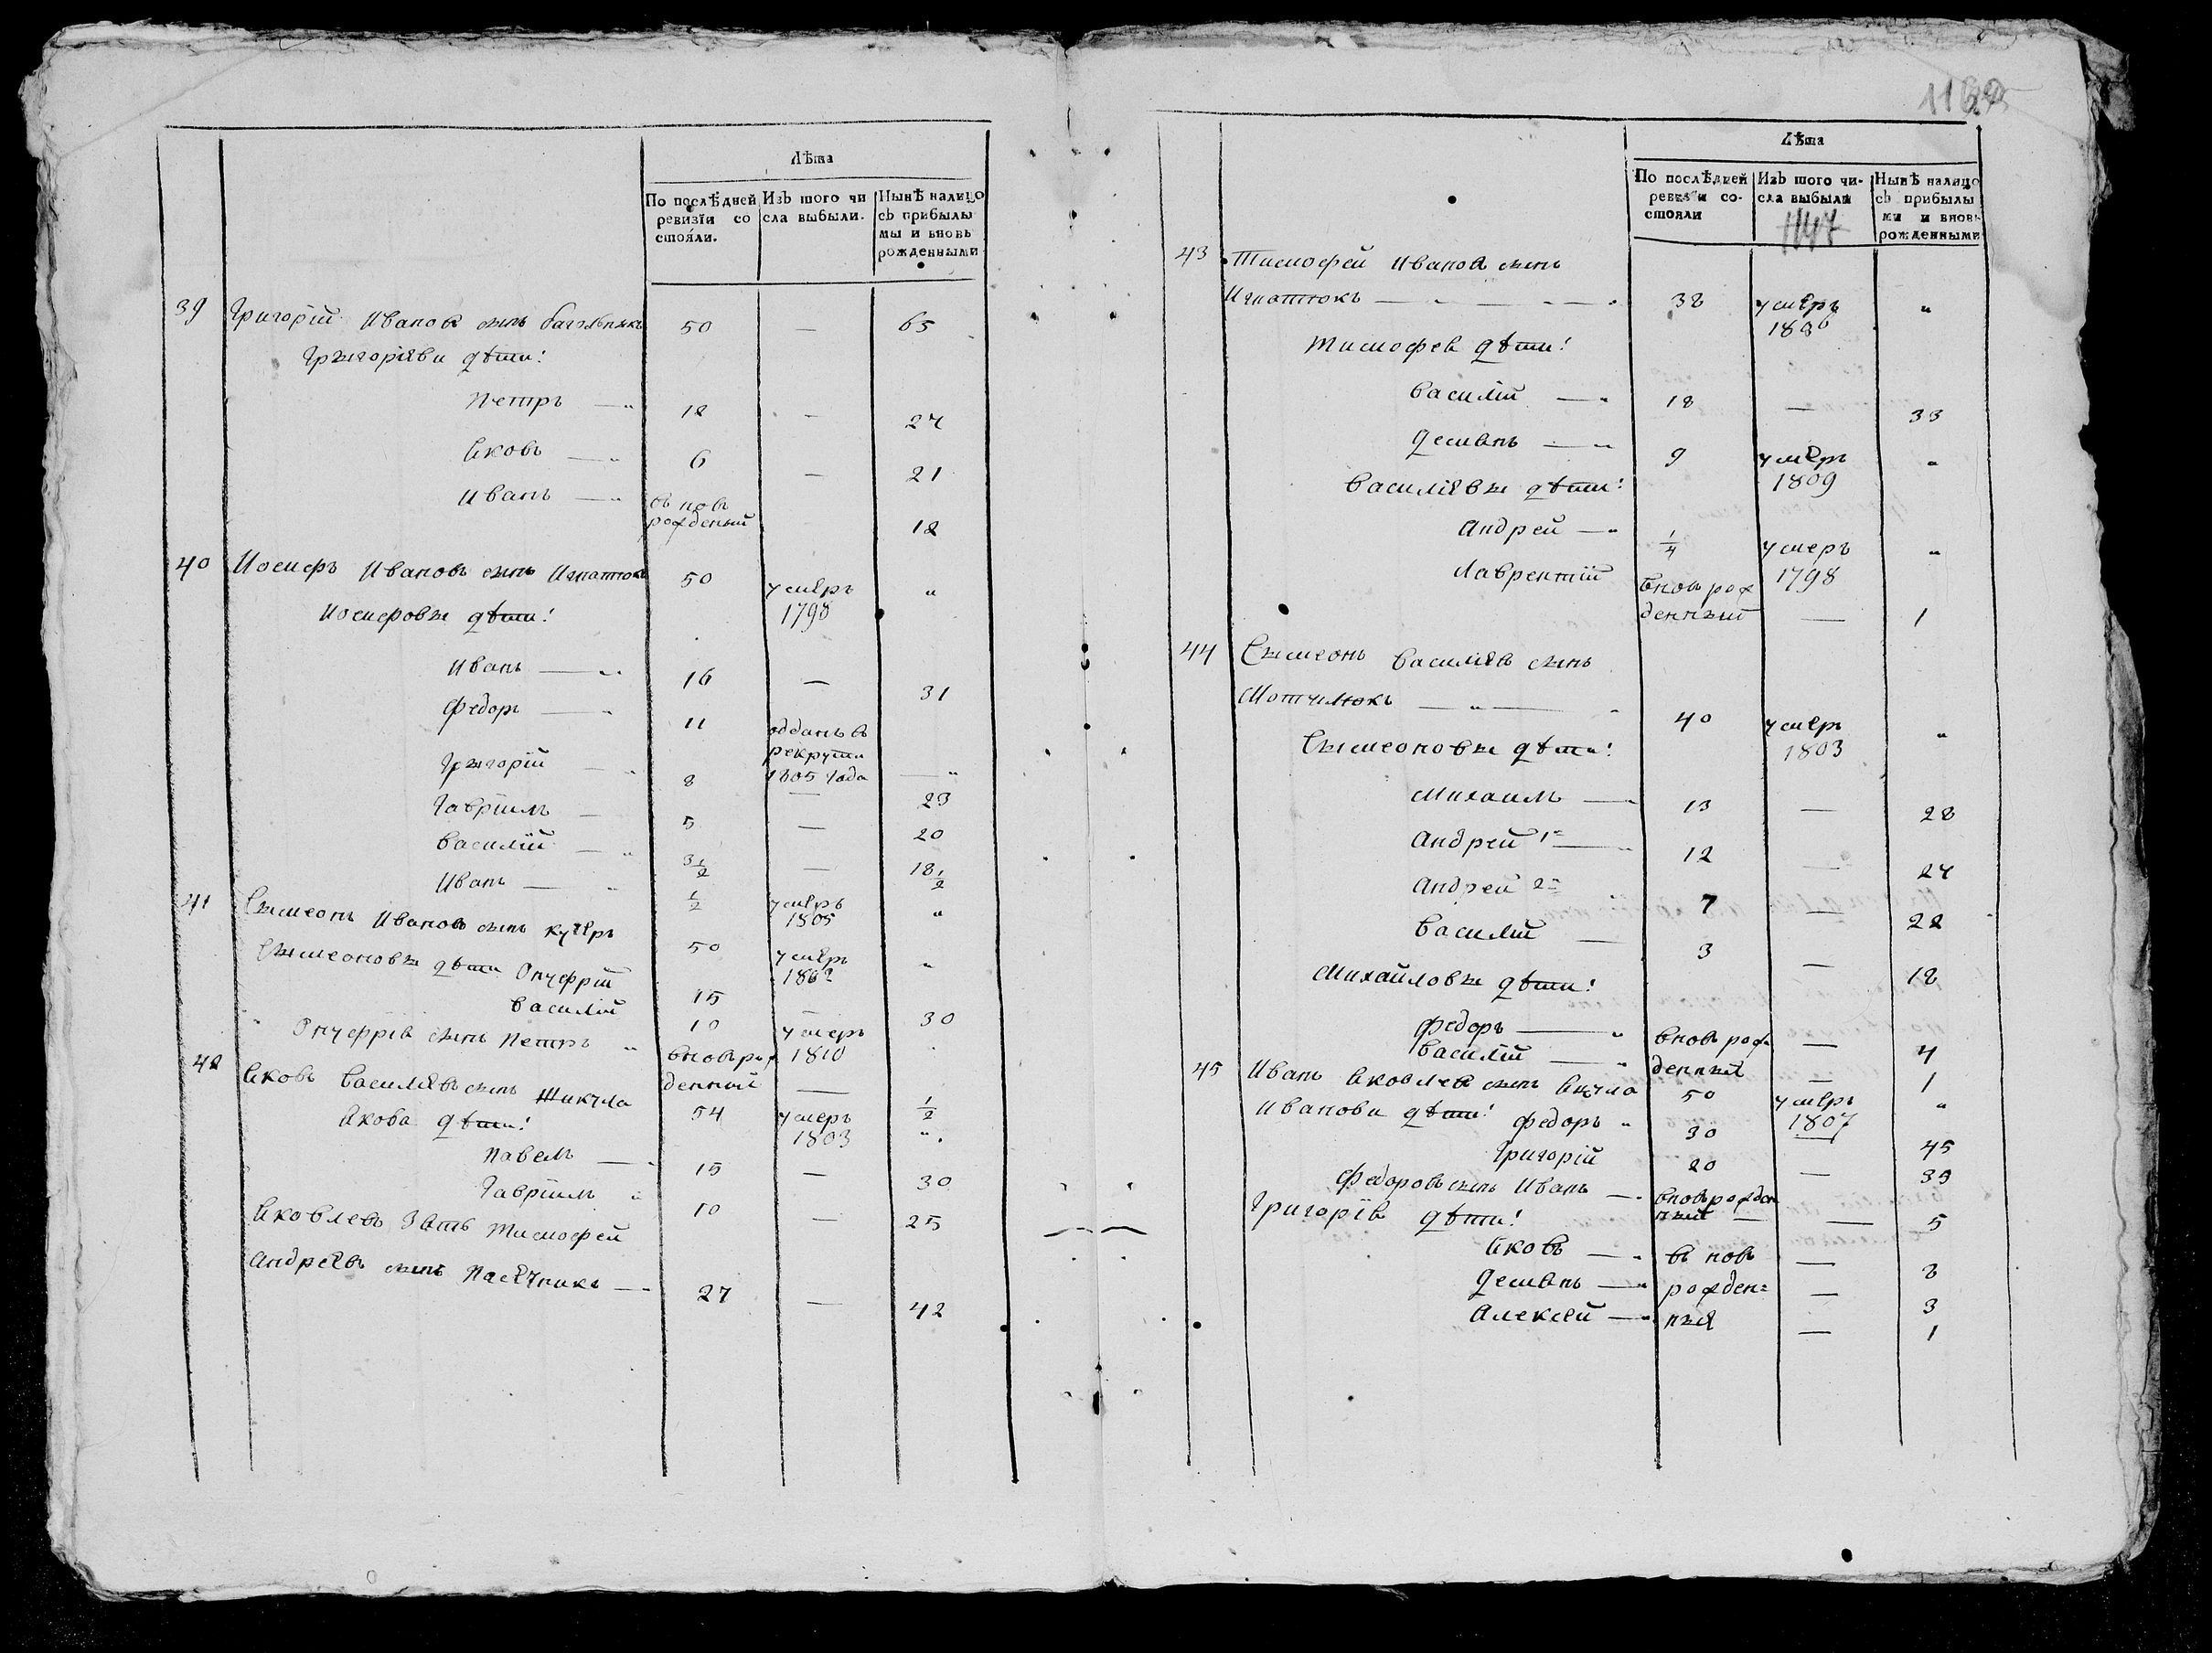 Лѣта
По послѣдней ревизіи со стояли.
Изъ того чи сла выбыли.
Нынѣ налицо съ прибылы мы и вновь рожденными
39 Григорій Иванов сынъ 50 — 65
Григоріяви дѣти:
Петръ — 12 — 27
Яковъ — 6 — 21
Иванъ — въ нов рожденый 12
40 Иосифъ Ивановъ сынъ Игнатюкъ 50 умяръ 1798 "
Иосифовы дѣти:
Иванъ — 16 — 31
Федоръ — 11 оддань въ рекруты 1805 года — "
Григорій — 8 — 23
Гавріилъ — 5 — 20
Василій — 3 1/2 — 18 1/2
Иванъ — 1/2 умяръ 1805 "
41 Сымеонъ Ивановъ сынъ Кучяръ 50 умяръ "
Сымеоновы дѣти Онуфрій 15 — 30
Василій 10 умеръ 1810
Онуфрія сынъ Петръ " вновь рожденный — 1/2
42 Яковъ Василіявъ сынъ Шикула 54 умеръ 1803 "
Якова дѣти:
Павелъ — 15 — 30
Гавріилъ 10 — 25
Яковлевъ Зять Тимофей
Андреявъ сынъ Пасячникъ — 27 — 42
1147
Лѣта
По послѣдней ревизіи со- стояли
Изъ того чи- сла выбыли
Нынѣ налицо съ прибылы ми и вновь рожденными
43 Тимофей Иванов сынъ
Игнатюкъ — 38 умяръ "
Тимофея дѣти:
Василій — 18 — 33
Демянъ — 9 умяръ 1809 "
Василіявы дѣти:
Андрей — 1/4 умеръ 1798 "
Лаврентій вновь рожденный — 1
44 Сымеонъ Василіявъ сынъ
Мотчилюкъ — 40 умяръ 1803 "
Сымеоновы дѣти:
Михаилъ — 13 — 28
Андрей 1й — 12 — 27
Андрей 2й 7 — 22
Василій — 3 — 18
Михайловы дѣти:
Федоръ — вновь рож — 4
Василій — денныя — 1
45 Иванъ Яковлевъ сынъ 50 умяръ 1807 "
Иванови дѣти: Федоръ " 30 — 45
Григорій 20 — 35
Федоровъ сынъ Иванъ — вновь рожден ный — 5
Григорія дѣти:
Яковъ — въ новь — 8
Демянъ — рожден= — 3
Алексѣй — ныя — 1